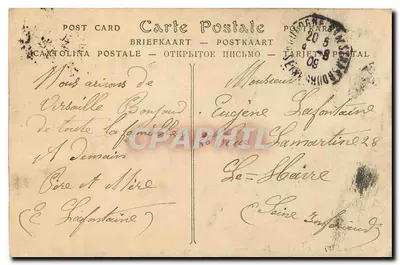 POST CARD Carte Postale POSTKARTE
BRIEFKAART - POSTKAART
CARTOLINA POSTALE - ОТКРЫТОЕ ПИСЬМО - TARJETA POSTAL
Nous arivons de
Versaille Bonjour
de toute la famille
A demain
Père et Mère
(E Lafontaine)
Monsieur
Eugène Lafontaine
Lamartine 28
Le-Havre
(Seine Inférieure)
CPArama.com